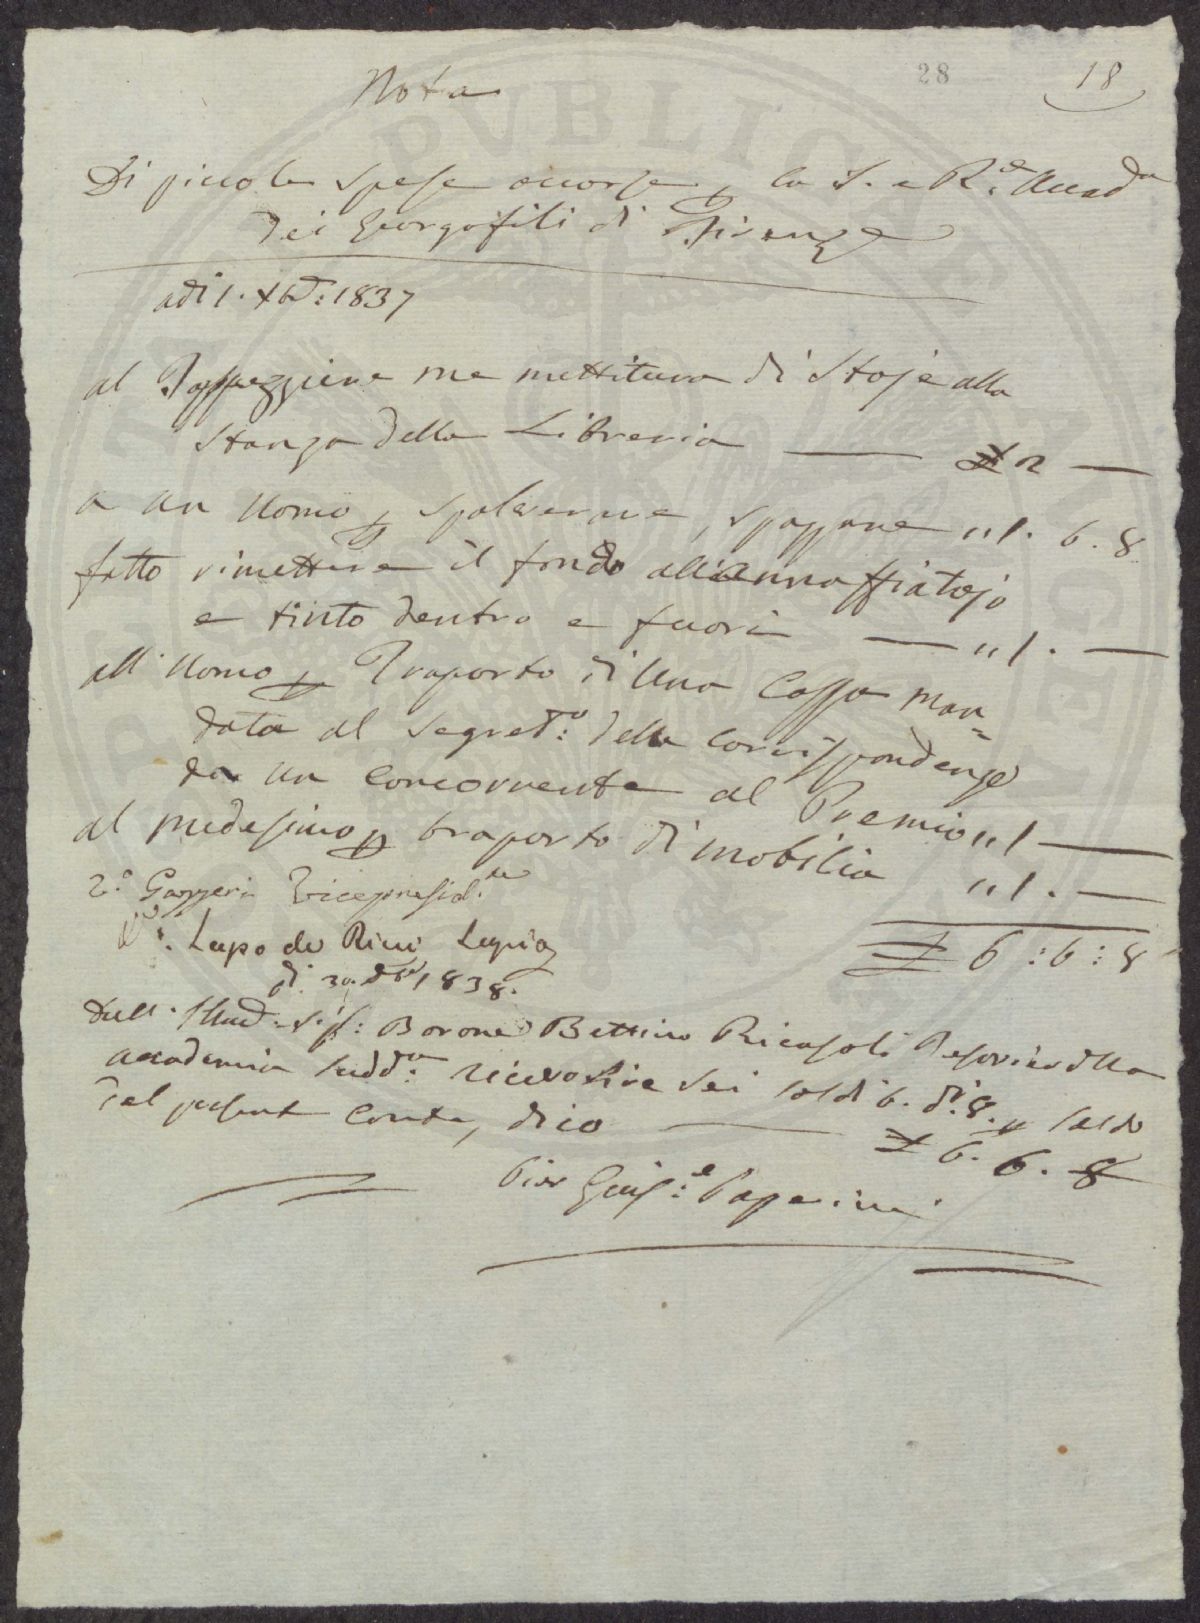 28
18
Nota
Di piccole spese occorse p la I. e R.e Accad.a
dei Georgofili di Firenze
adi 1. Xbre: 1837
al Tappezziere me mettitura di Stoje alla
Stanza della Libreria — £ 2 —
a un Uomo p spolverare, spazzare " 1. 6. 8
fatto rimettere il fondo all'Annaffiatojo
e tinto dentro e fuori — " 1. —
all'Uomo p Traporto di Una Cassa man=
data al Segret.o: della Corrispondenze
da un Concorrente al Premio " 1 —
al medesimo p traporto di mobilia " 1. —
£ 6 : 6 : 8
Gazzeri Vicepresid.te
V.o: Lapo de Ricci
di 30. 1838.
Dall' Illmo. Sig: Barone Bettino Ricasoli Tesoriere della
Accademia Sudd.a: ricevo lire sei soldi 6. d. 8. p saldo
del presente Conto, dico — £ 6. 6. 8
Pier Gius:e Paperini